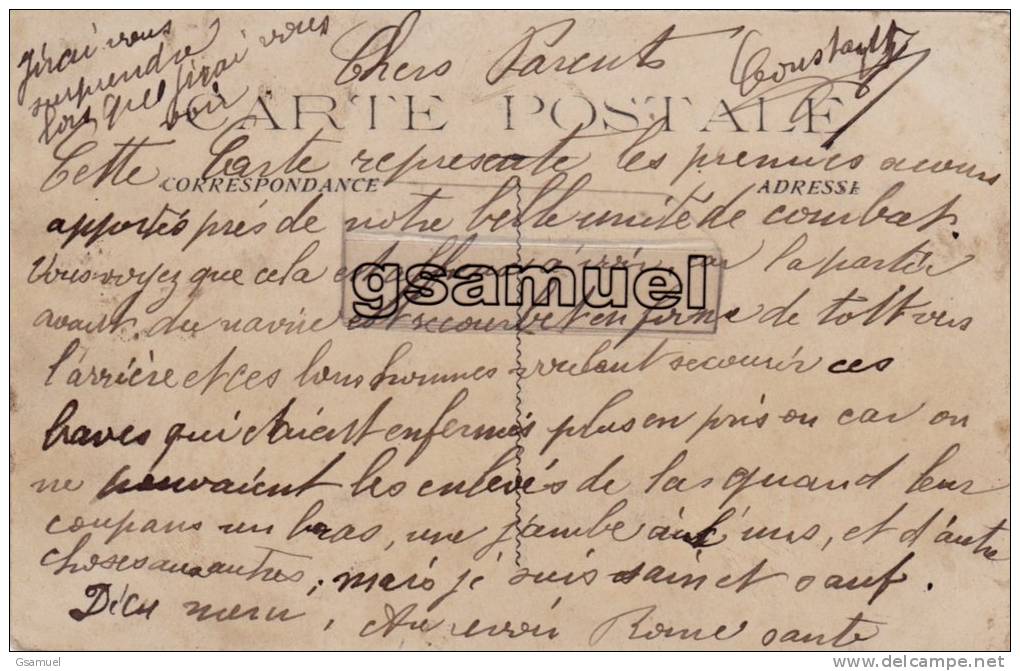 J'irai vous
surprendre
lors que j'irai vous
voir
Chers Parents
Constant
CARTE POSTALE
Cette Carte represente les premiers secours
CORRESPONDANCE
ADRESSE
apportés prés de notre belle unité de combat
Vous voyez que cela est la partie
gsamuel
avant du navire est recourbet en forme de toit vers
l'arrière et ces bons hommes voulant secourir ces
braves qui étaient enfermés plus en prison car on
ne pouvaient les enlevés de la quand leur
coupans un bras, une jambe à l'uns, et d'autre
choses aux autres, mais je suis sain et sauf.
Dieu merci, Au revoir Bonne santé
Gsamuel
http://www.delcampe.net